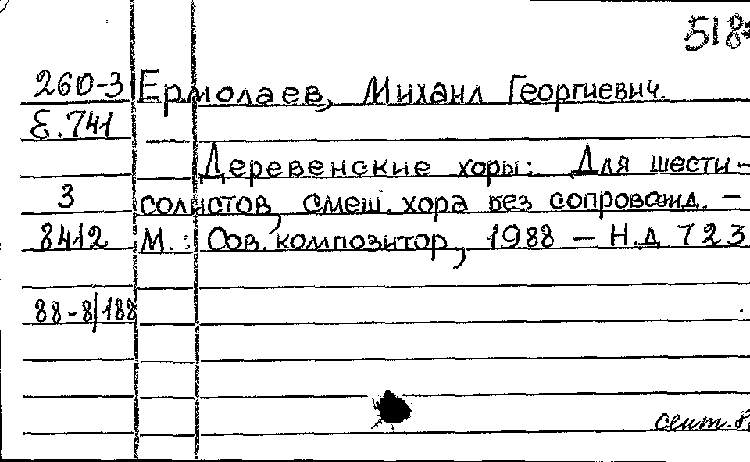 518
260-3 Ермолаев, Михаил Георгиевич.
Е.741
Деревенские хоры: Для шести-
3 солистов, смеш. хора без сопровожд. –
8412 М.: Сов. композитор, 1988 – Н.д 723
88-8/188
сент. 8